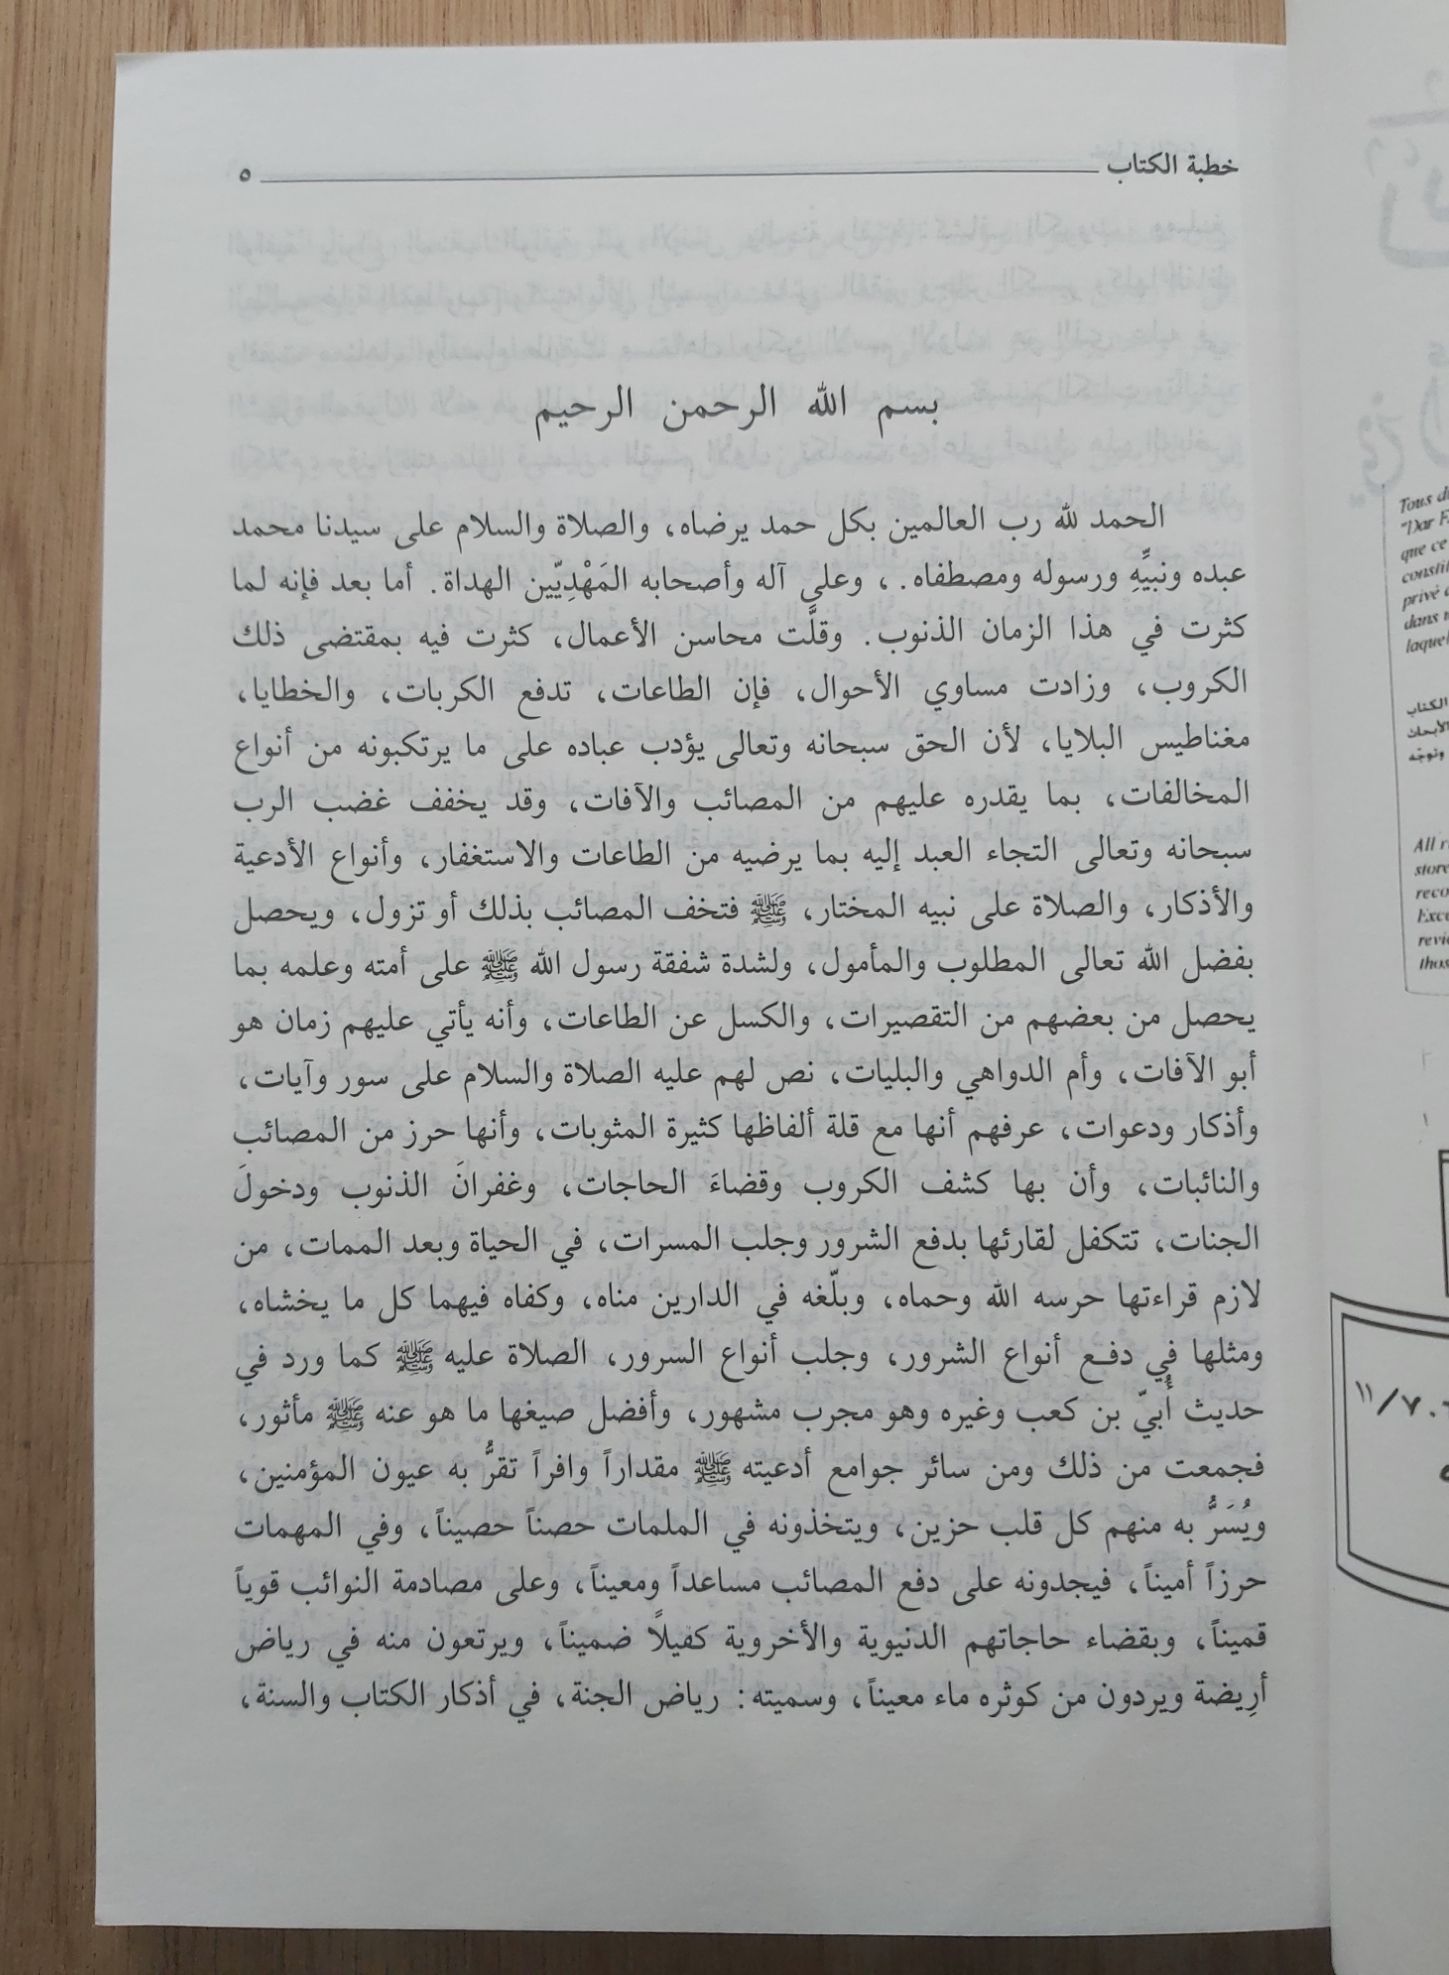 خطبة الكتاب ٥
بسم الله الرحمن الرحيم
الحمد لله رب العالمين بكل حمد يرضاه، والصلاة والسلام على سيدنا محمد
عبده ونبيِّهِ ورسوله ومصطفاه.، وعلى آله وأصحابه المَهْدِيّين الهداة. أما بعد فإنه لما
كثرت في هذا الزمان الذنوب. وقلَّت محاسن الأعمال، كثرت فيه بمقتضى ذلك
الكروب، وزادت مساوي الأحوال، فإن الطاعات، تدفع الكربات، والخطايا،
مغناطيس البلايا، لأن الحق سبحانه وتعالى يؤدب عباده على ما يرتكبونه من أنواع
المخالفات، بما يقدره عليهم من المصائب والآفات، وقد يخفف غضب الرب
سبحانه وتعالى التجاء العبد إليه بما يرضيه من الطاعات والاستغفار، وأنواع الأدعية
والأذكار، والصلاة على نبيه المختار، ﷺ فتخف المصائب بذلك أو تزول، ويحصل
بفضل الله تعالى المطلوب والمأمول، ولشدة شفقة رسول الله ﷺ على أمته وعلمه بما
يحصل من بعضهم من التقصيرات، والكسل عن الطاعات، وأنه يأتي عليهم زمان هو
أبو الآفات، وأم الدواهي والبليات، نص لهم عليه الصلاة والسلام على سور وآيات،
وأذكار ودعوات، عرفهم أنها مع قلة ألفاظها كثيرة المثوبات، وأنها حرز من المصائب
والنائبات، وأن بها كشف الكروب وقضاءَ الحاجات، وغفرانَ الذنوب ودخولَ
الجنات، تتكفل لقارئها بدفع الشرور وجلب المسرات، في الحياة وبعد الممات، من
لازم قراءتها حرسه الله وحماه، وبلّغه في الدارين مناه، وكفاه فيهما كل ما يخشاه،
ومثلها في دفع أنواع الشرور، وجلب أنواع السرور، الصلاة عليه ﷺ كما ورد في
حديث أُبيّ بن كعب وغيره وهو مجرب مشهور، وأفضل صيغها ما هو عنه ﷺ مأثور،
فجمعت من ذلك ومن سائر جوامع أدعيته ﷺ مقداراً وافراً تقرُّ به عيون المؤمنين،
ويُسَرُّ به منهم كل قلب حزين، ويتخذونه في الملمات حصناً حصيناً، وفي المهمات
حرزاً أميناً، فيجدونه على دفع المصائب مساعداً ومعيناً، وعلى مصادمة النوائب قوياً
قميناً، وبقضاء حاجاتهم الدنيوية والأخروية كفيلاً ضميناً، ويرتعون منه في رياض
أرِيضة ويردون من كوثره ماء معيناً، وسميته: رياض الجنة، في أذكار الكتاب والسنة،
Tous
"Dar
que ce
privé
dans
الكتاب
الأبحاث
ونوجّه
All